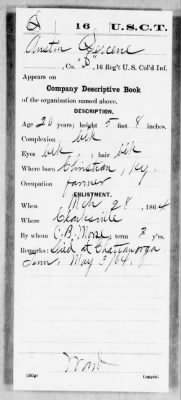 16 U.S.C.T.
Austin
, Co. "D", 16 Reg't U. S. Col'd Inf.
Appears on
Company Descriptive Book
of the organization named above.
DESCRIPTION.
Age 20 years; height 5 feet 8 inches.
Complexion blk
Eyes blk ; hair blk
Where born Christian, Ky.
Occupation farmer
ENLISTMENT.
When Mch 28, 1864
Where Clarksville
By whom ; term 3 y'rs.
Remarks: Died at Chattanooga
Tenn. May 3/64.
Copyist.